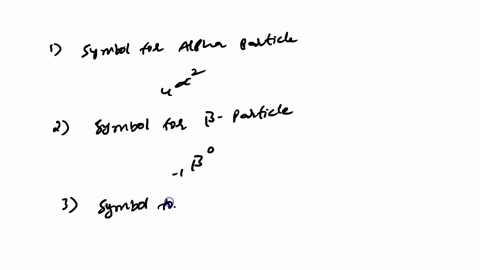 1) Symbol for Alpha Particle
₄α²
2) Symbol for β- Particle
₋₁β⁰
3) Symbol fo